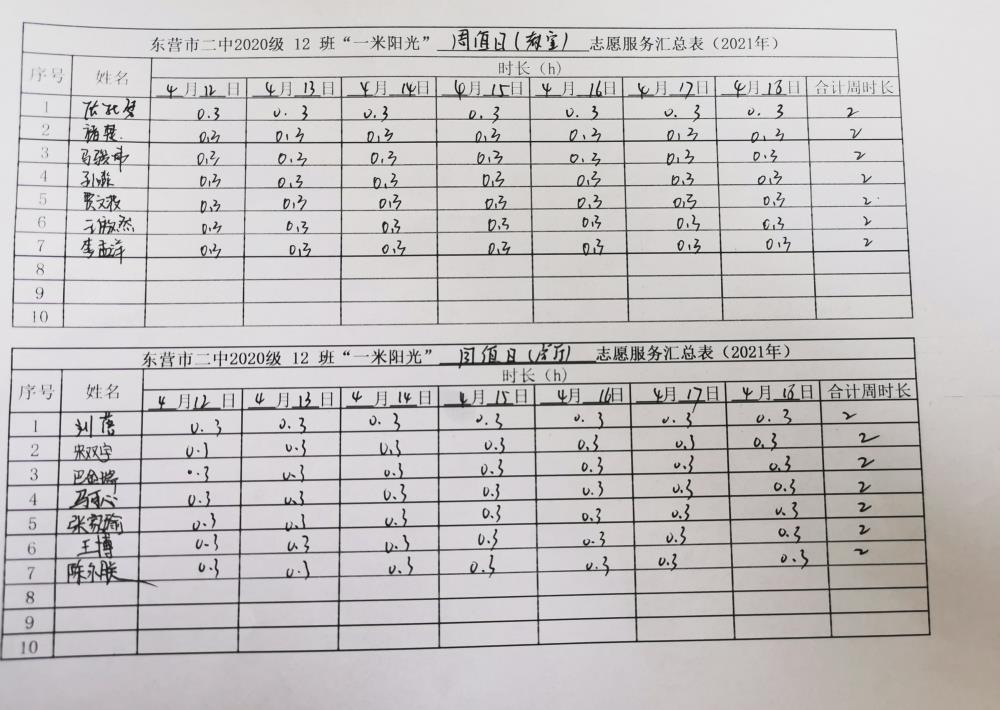 东营市二中2020级 12 班“一米阳光” 周值日(教室) 志愿服务汇总表（2021年）
序号 姓名 时长（h）
4月12日 4月13日 4月14日 4月15日 4月16日 4月17日 4月18日 合计周时长
1 0.3 0.3 0.3 0.3 0.3 0.3 0.3 2
2 褚楚 0.3 0.3 0.3 0.3 0.3 0.3 0.3 2
3 0.3 0.3 0.3 0.3 0.3 0.3 0.3 2
4 0.3 0.3 0.3 0.3 0.3 0.3 0.3 2
5 0.3 0.3 0.3 0.3 0.3 0.3 0.3 2
6 0.3 0.3 0.3 0.3 0.3 0.3 0.3 2
7 李孟洋 0.3 0.3 0.3 0.3 0.3 0.3 0.3 2
8
9
10
东营市二中2020级 12 班“一米阳光” 周值日 志愿服务汇总表（2021年）
序号 姓名 时长（h）
4月12日 4月13日 4月14日 4月15日 4月16日 4月17日 4月18日 合计周时长
1 0.3 0.3 0.3 0.3 0.3 0.3 0.3 2
2 宋双宇 0.3 0.3 0.3 0.3 0.3 0.3 0.3 2
3 0.3 0.3 0.3 0.3 0.3 0.3 0.3 2
4 马可心 0.3 0.3 0.3 0.3 0.3 0.3 0.3 2
5 张家瑜 0.3 0.3 0.3 0.3 0.3 0.3 0.3 2
6 王博 0.3 0.3 0.3 0.3 0.3 0.3 0.3 2
7 0.3 0.3 0.3 0.3 0.3 0.3 0.3
8
9
10